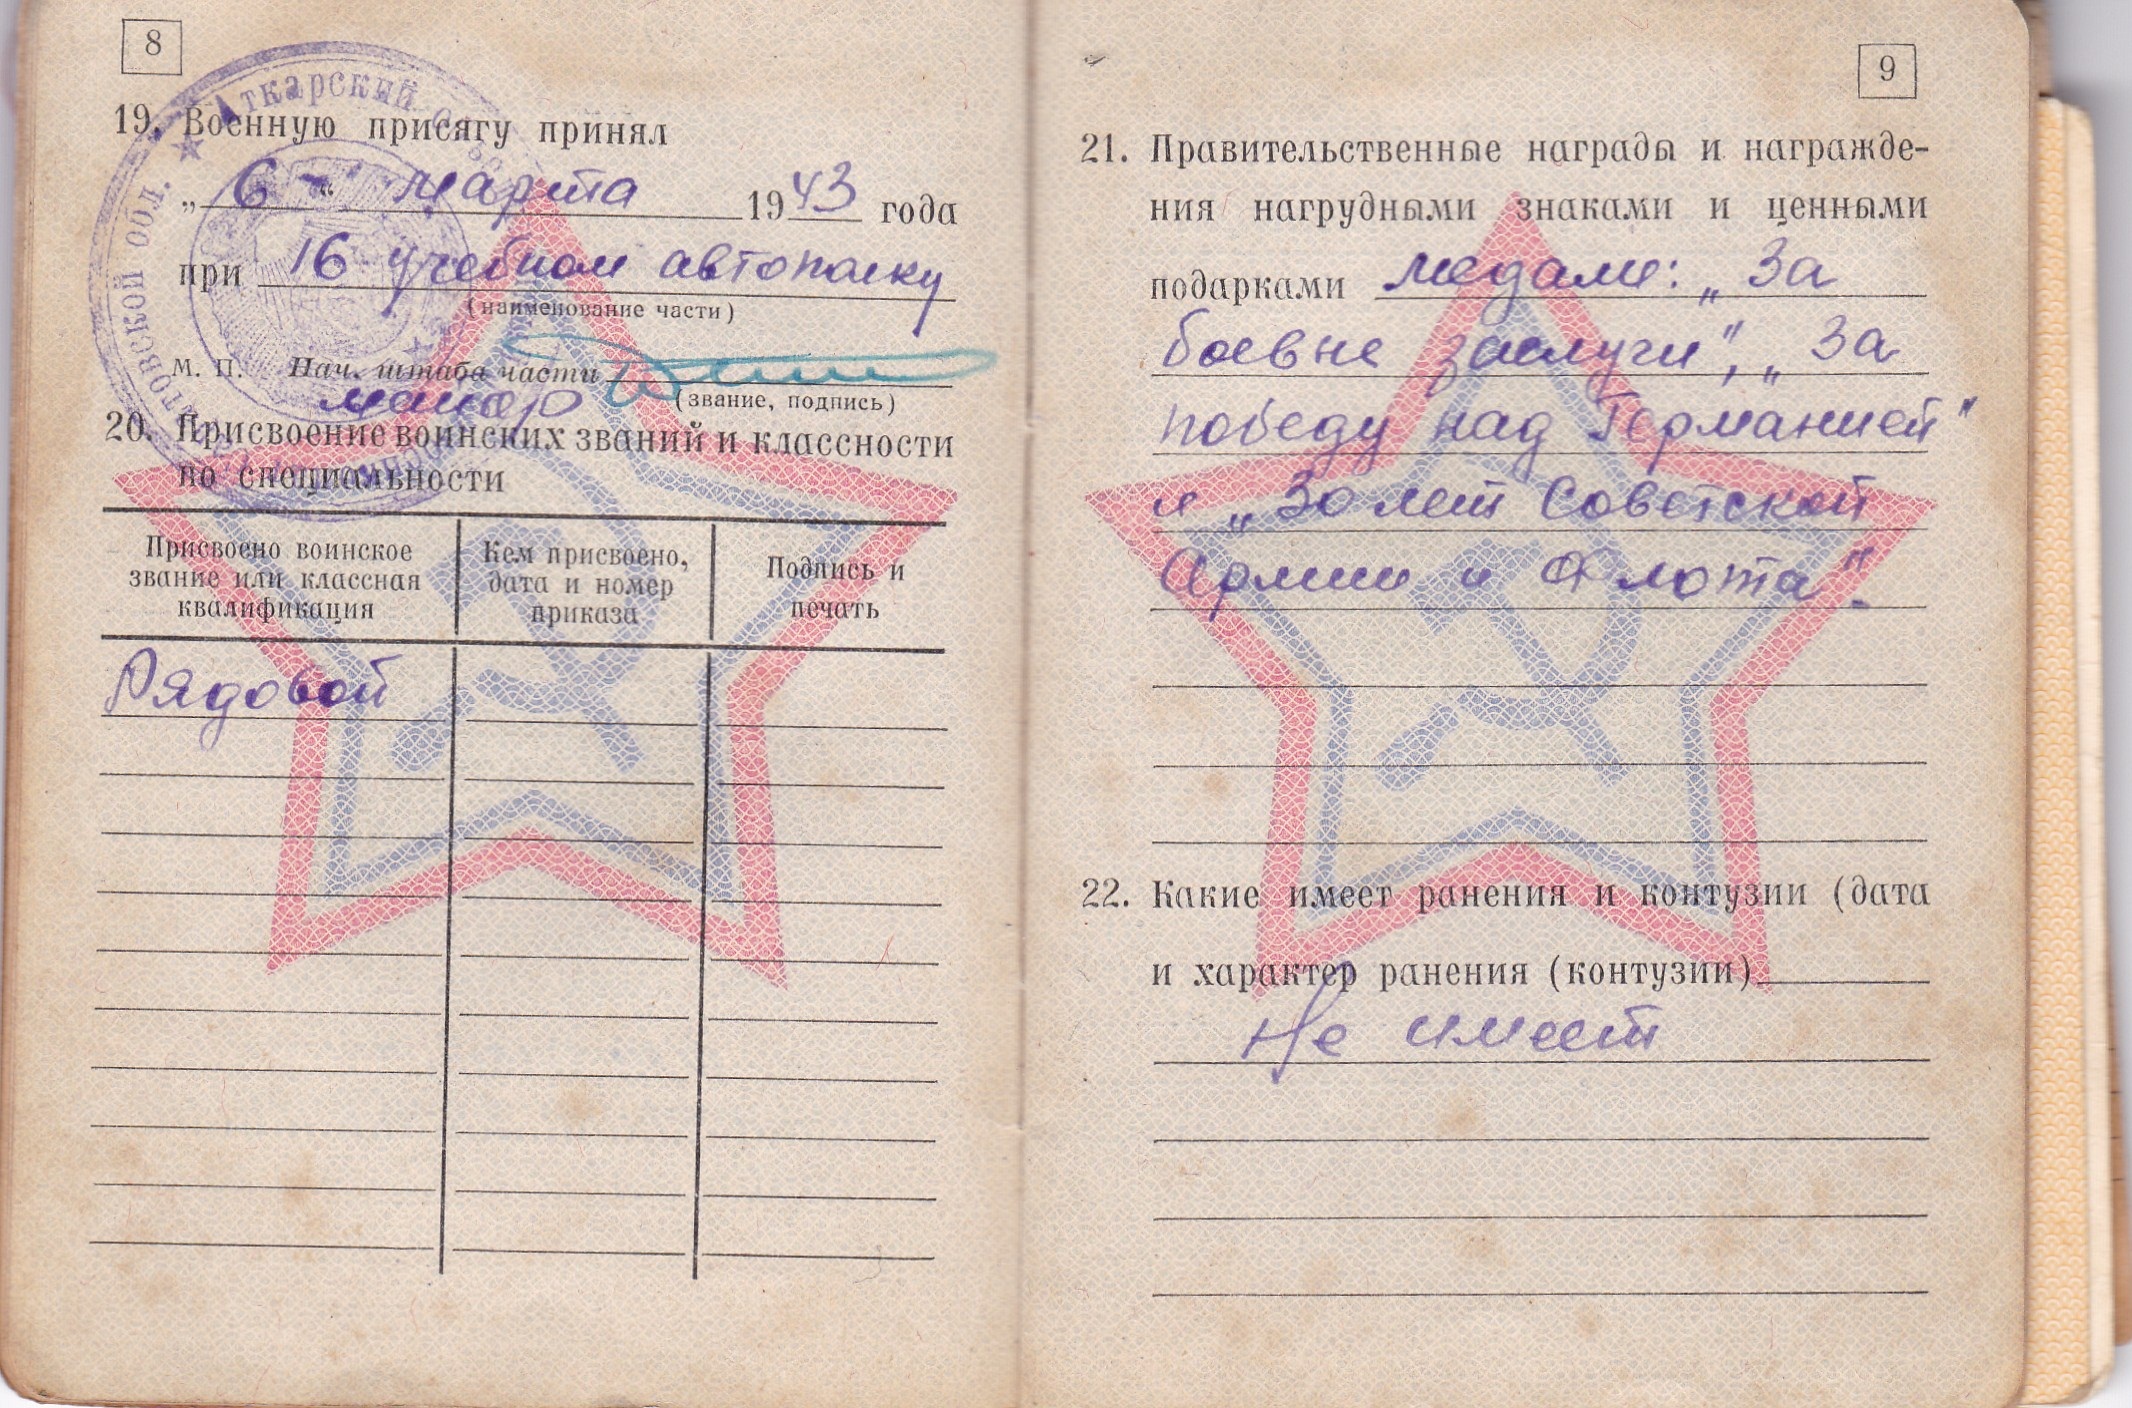 8
Аткарский
товской обл.
19. Военную присягу принял
„ 6 “ марта 1943 года
при 16 учебном автополку
(наименование части)
М. П. Нач. штаба части
майор (звание, подпись)
20. Присвоение воинских званий и классности
по специальности
Присвоено воинское
звание или классная
квалификация
Кем присвоено,
дата и номер
приказа
Подпись и
печать
Рядовой
9
21. Правительственные награды и награжде-
ния нагрудными знаками и ценными
подарками медали: „За
боевые заслуги", „За
победу над Германией"
и „30 лет Советской
Армии и Флота".
22. Какие имеет ранения и контузии (дата
и характер ранения (контузии)
Не имеет